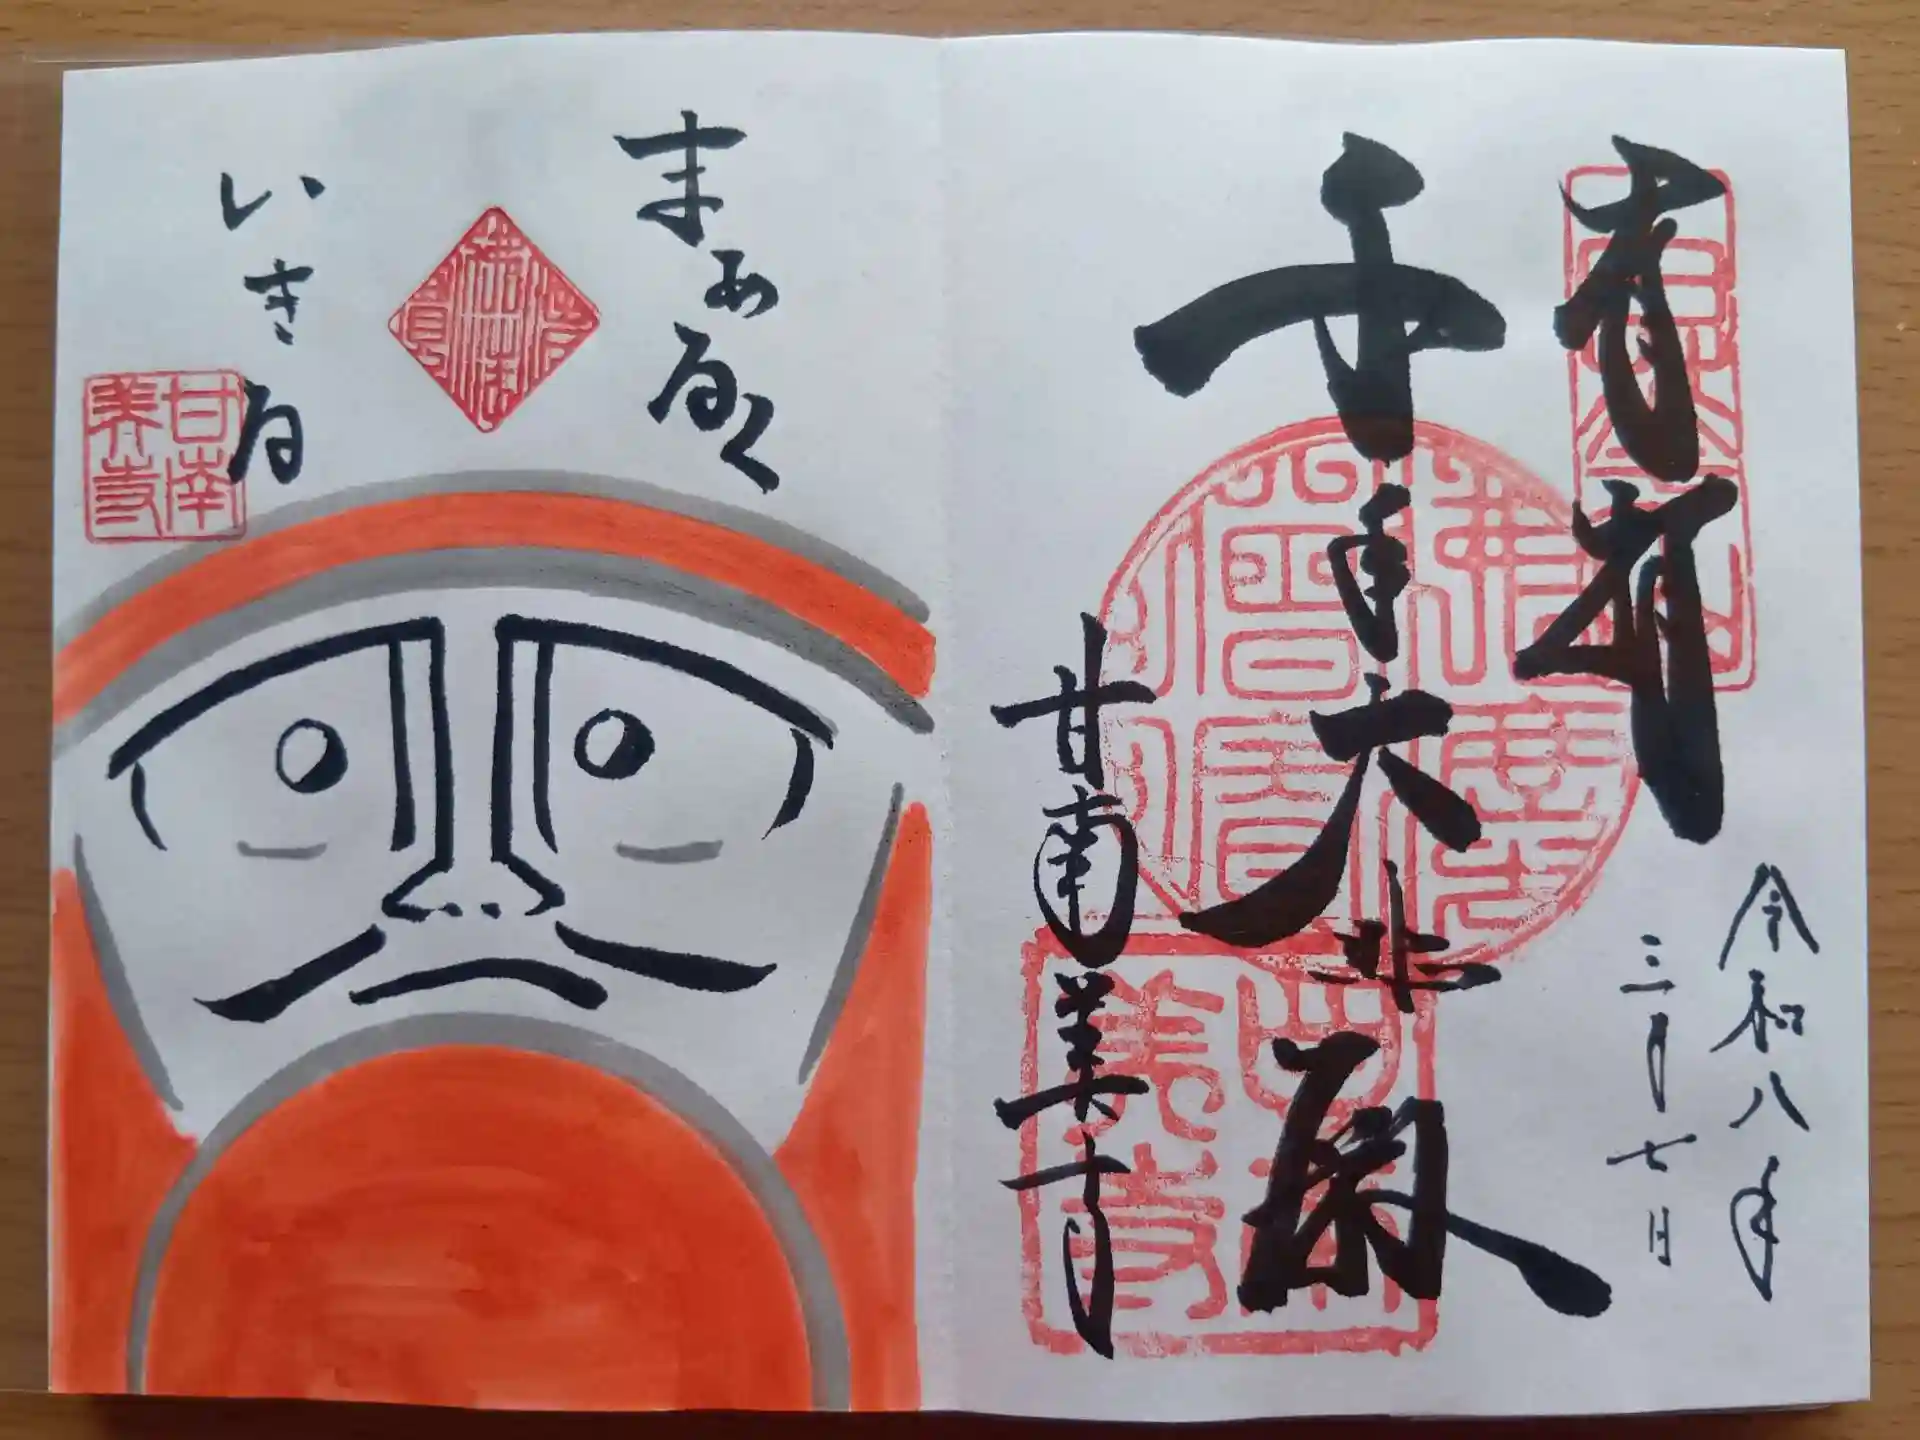 奉拝
令和八年
三月七日
千手大悲殿
甘南美寺
まあるく
いきる
甘南美寺
甘南美寺